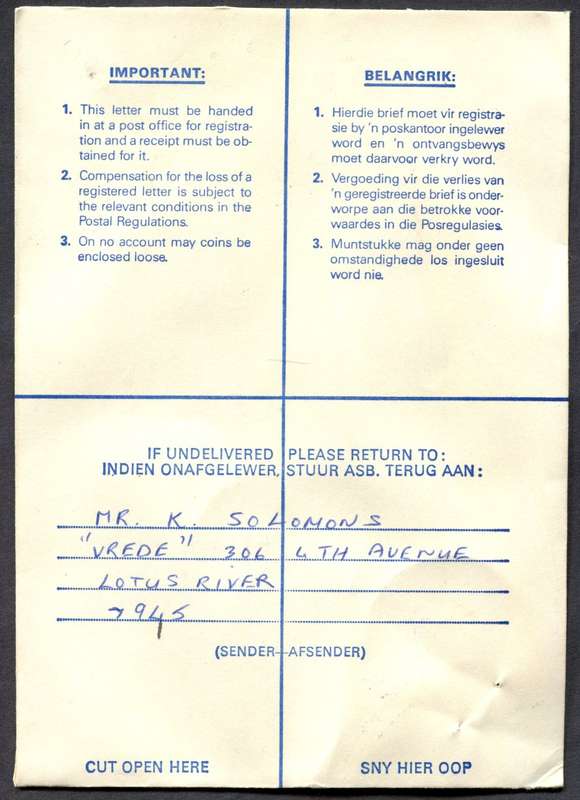 IMPORTANT:
1. This letter must be handed
in at a post office for registra-
tion and a receipt must be ob-
tained for it.
2. Compensation for the loss of a
registered letter is subject to
the relevant conditions in the
Postal Regulations.
3. On no account may coins be
enclosed loose.
BELANGRIK:
1. Hierdie brief moet vir registra-
sie by 'n poskantoor ingelewer
word en 'n ontvangsbewys
moet daarvoor verkry word.
2. Vergoeding vir die verlies van
'n geregistreerde brief is onder-
worpe aan die betrokke voor-
waardes in die Posregulasies.
3. Muntstukke mag onder geen
omstandighede los ingesluit
word nie.
IF UNDELIVERED PLEASE RETURN TO:
INDIEN ONAFGELEWER, STUUR ASB. TERUG AAN:
MR. K. SOLOMONS
"VREDE" 306 4TH AVENUE
LOTUS RIVER
7945
(SENDER—AFSENDER)
CUT OPEN HERE
SNY HIER OOP